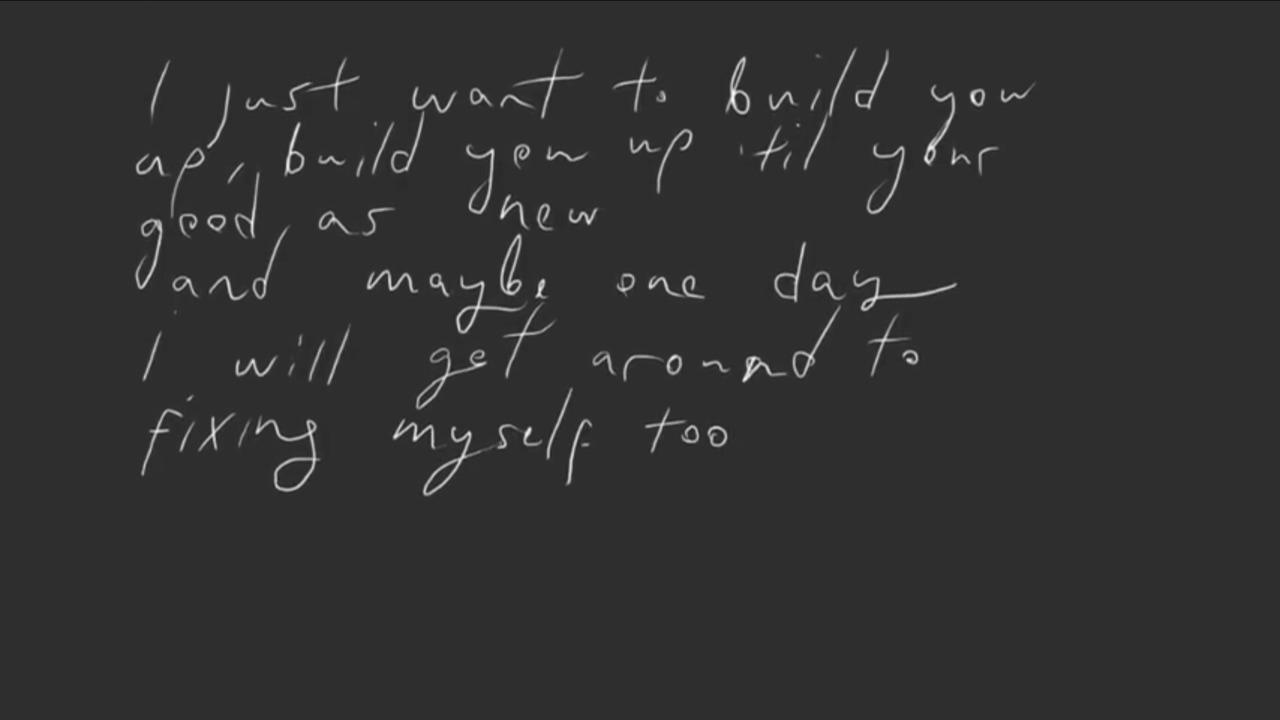 I just want to build you
up, build you up 'til your
good as new
and maybe one day
I will get around to
fixing myself too